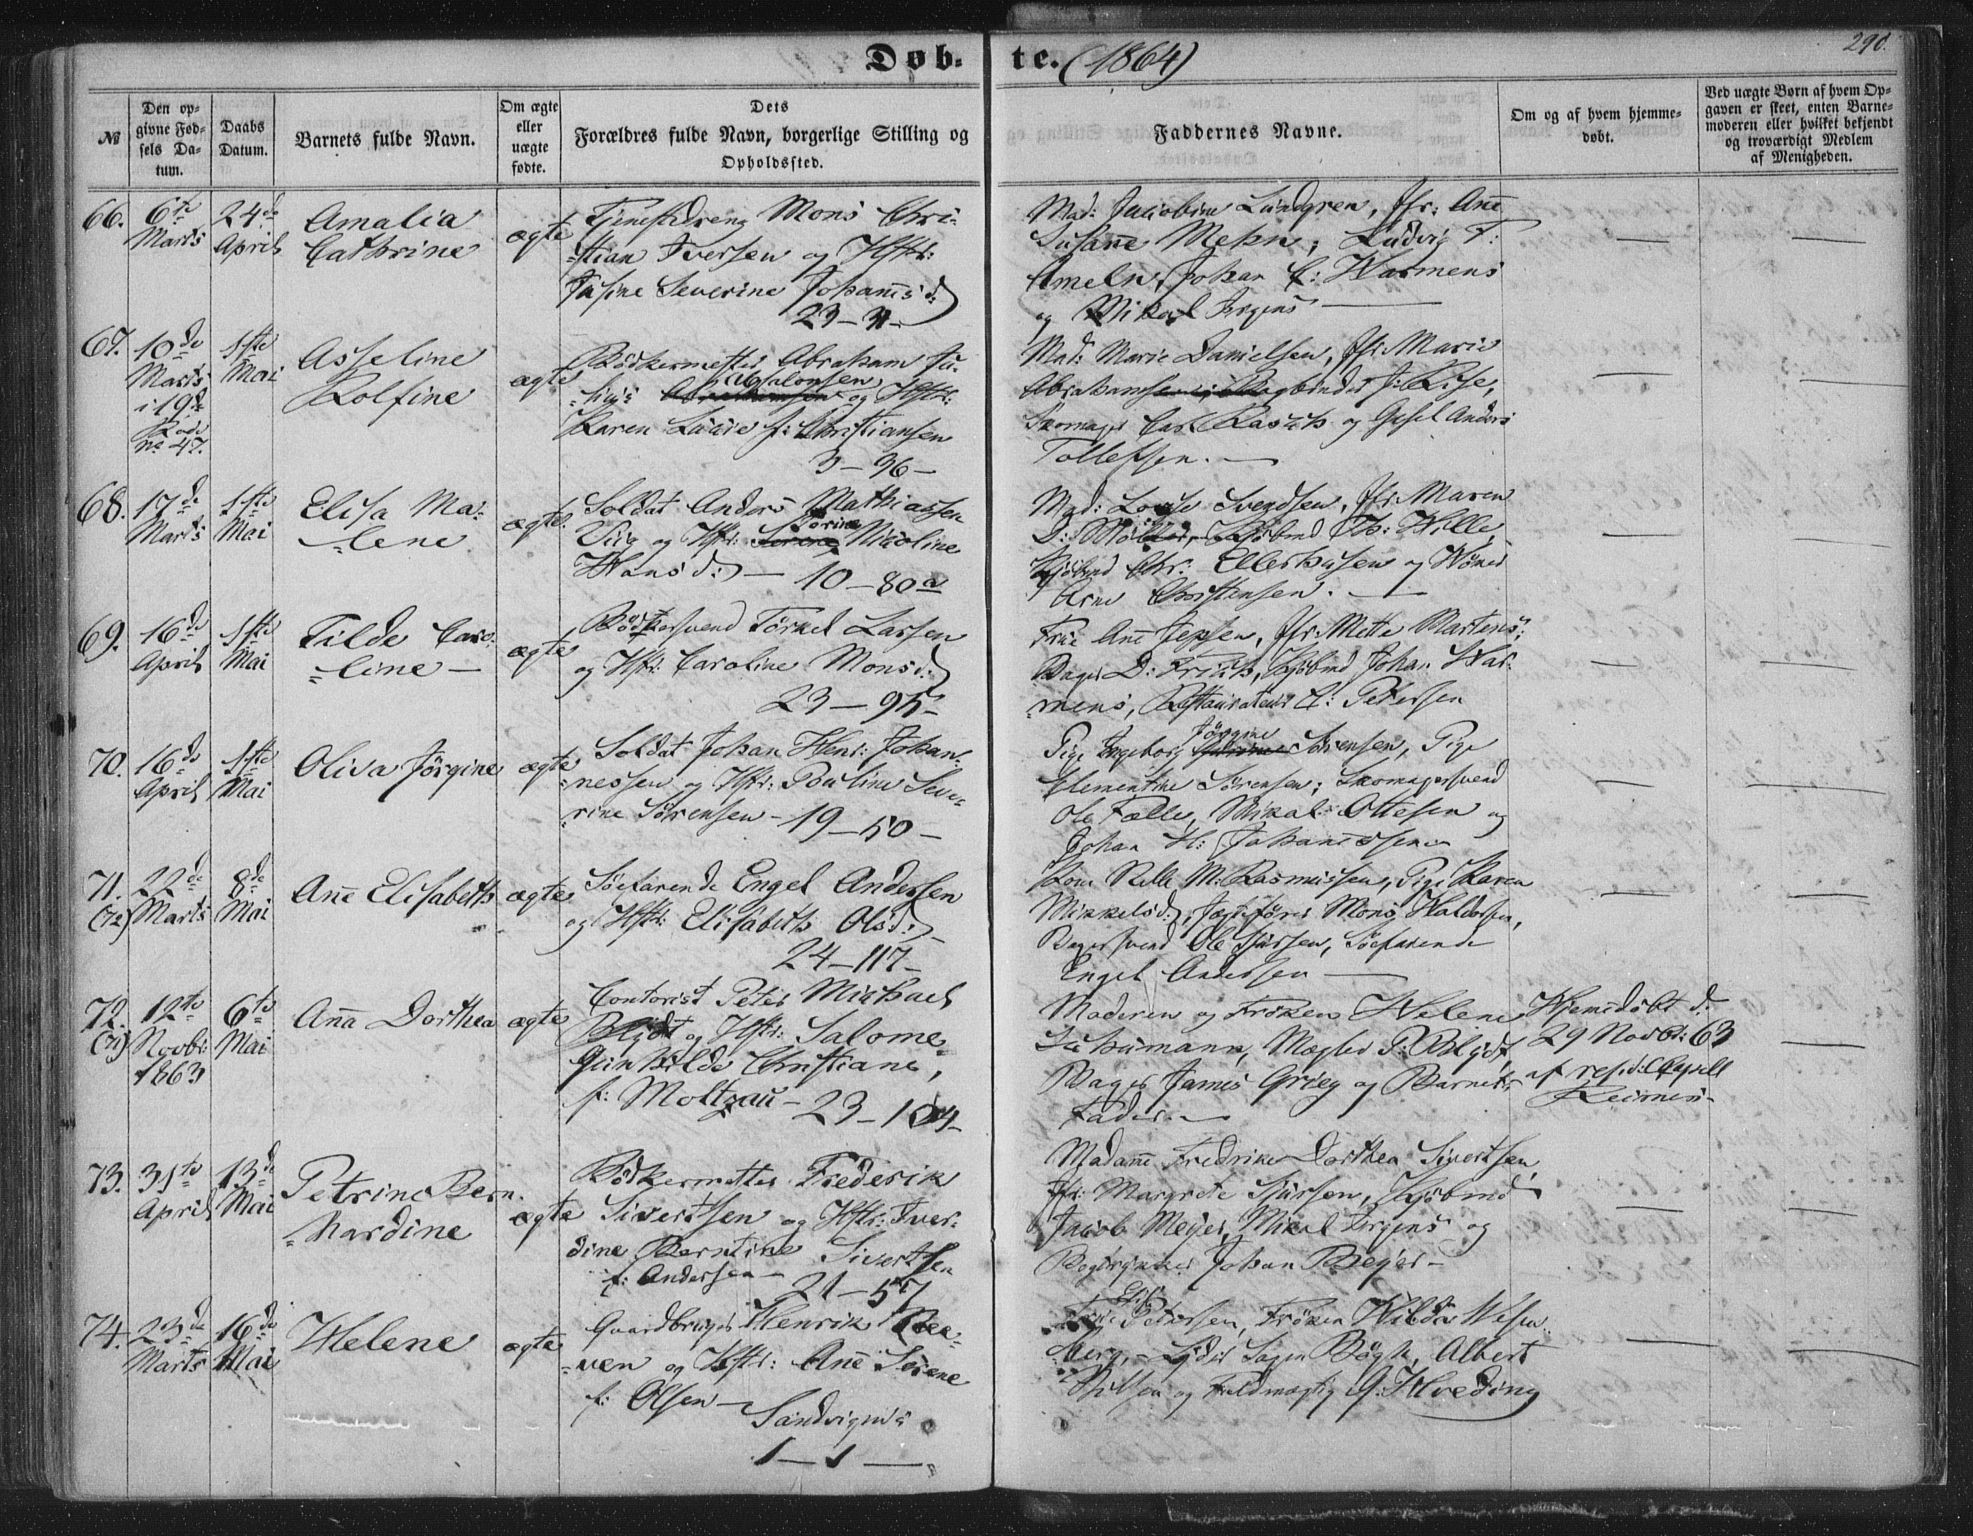 Døb-te. (1864)
290.
№
Den opgivne Fødsels Datum.
Daabs Datum.
Barnets fulde Navn.
Om ægte eller uægte fødte.
Dets Forældres fulde Navn, borgerlige Stilling og Opholdssted.
Faddernes Navne.
Om og af hvem hjemmedøbt.
Ved uægte Børn af hvem Opgaven er skeet, enten Barnemoderen eller hvilket bekjendt og troværdigt Medlem af Menigheden.
66.
6te Marts
24de April
Amalia
Cathrine
ægte
Tjenestedreng Mons Chri-
stian Iversen og Hstr:
Severine Johannsd:
23-31-
Mad: Jacobine Lundgren, Jfr: Ane
Susanne Mehn; Ludvig F:
Ameln, Johan C: Harmens
og Mikael Irgens
67.
10de Marts
i 19de
no 47.
1ste Mai
Asseline
Rolfine
ægte
Bødkermester Abraham
Absalonsen og Hstr:
Karen f: Christiansen
3-96-
Mad: Marie Danielsen, Jfr: Marie
Abrahamsen; Bogbinder J: Rise,
Skomager Carl Rasch og Gesel Anders
Tollefsen.
68.
17de Marts
1ste Mai
Elisa Ma-
lene
ægte.
Soldat Anders Mathiassen
Vig og Hstr: Nicoline
Hansd: - 10-80a
Mad: Louise Svendsen, Jfr: Maren
D: Møller, Kjøbmd Th: Wille,
Kjøbmd Chr: Ellerhusen og
Arne Christensen.
69.
16de April
1ste Mai
Tilde Caro-
line
ægte
Bødkersvend Torkel Larsen
og Hstr: Caroline Monsd:
23-95-
Frue Ane Jepsen, Jfr: Mette Martens;
Bager D: Frich, Kjøbmd Johan Har-
mens, Restaurateur A: Petersen
70.
16de April
1ste Mai
Oliva Jørgine
ægte
Soldat Johan Henr: Johan-
nessen og Hstr: Pauline Seve-
rine Sørensen - 19-50-
Pige Ingeborg Jørgine Sørensen, Pige
Clementine Sørensen; Skomagersvend
Ole Fælle, Mikal Ottesen og
Johan H: Johannessen
71.
(72)
22de Marts
8de Mai
Ane Elisabeth
ægte
Søefarende Engel Andersen
og Hstr: Elisabeth Olsd:
24-117-
Kone Rille M: Rasmussen, Pige Karen
Mikkelsd:, Jægtefører Mons Haldorsen,
Bagersvend Ole Sjursen, Søefarende
Engel Andersen
72.
(71)
12te Novbr: 1863
6te Mai
Anna Dorthea
ægte
Contorist Peter Michael
Blydt og Hstr: Salome
Gunhilde Christiane,
f: Moltzau - 23-104-
Moderen og Frøken Helene
Schumann, Mægler P: Blydt,
Bager James Grieg og Barnets
Fader.
Hjemmedøbt d.
29 Novbr: 63
af resid: Capell
Reimers-
73.
31te April
13de Mai
Petrine Bern-
hardine
ægte
Bødkermester Frederik
Sivertsen og Hstr: Iver-
dine Berntine Sivertsen
f: Andersen -
21-57
Madame Fredrike Dorthea Sivertsen,
Jfr: Margrete Sjursen, Kjøbmd
Jacob Meyer, Mikal Irgens og
Bogtrykker Johan Beyer-
74.
23de Marts
16de Mai
Helene
ægte
Gaardbruger Henrik
og Hstr: Ane Serene
f: Olsen -
Sandvigens
1-1-
Petersen, Frøken Hilda Wesen-
berg, - Lyder Sagen Bøgh, Albert
og Fuldmægtig G: Hveding